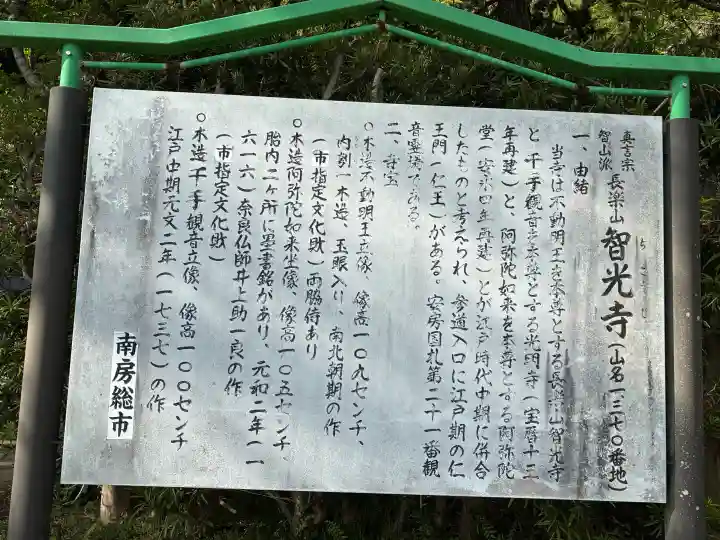 真言宗
智山派 長楽山 智光寺(山名一三七〇番地)
ちこうじ
一、由緒
当寺は不動明王を本尊とする長楽山智光寺
と、千手観音を本尊とする光明寺(宝暦十三
年再建)と、阿弥陀如来を本尊とする阿弥陀
堂(安永四年再建)とが江戸時代中期に併合
したものと考えられ、参道入口に江戸期の仁
王門(仁王)がある。安房国札第二十一番観
音霊場である。
二、寺宝
○木造不動明王立像、像高一〇九センチ、
内刳一木造、玉眼入り、南北朝期の作
(市指定文化財)両脇侍あり
○木造阿弥陀如来坐像、像高一〇五センチ、
胎内二ヶ所に墨書銘があり、元和二年(一
六一六)奈良仏師井上助一良の作
(市指定文化財)
○木造千手観音立像、像高一〇〇センチ
江戸中期元文二年(一七三七)の作
南房総市